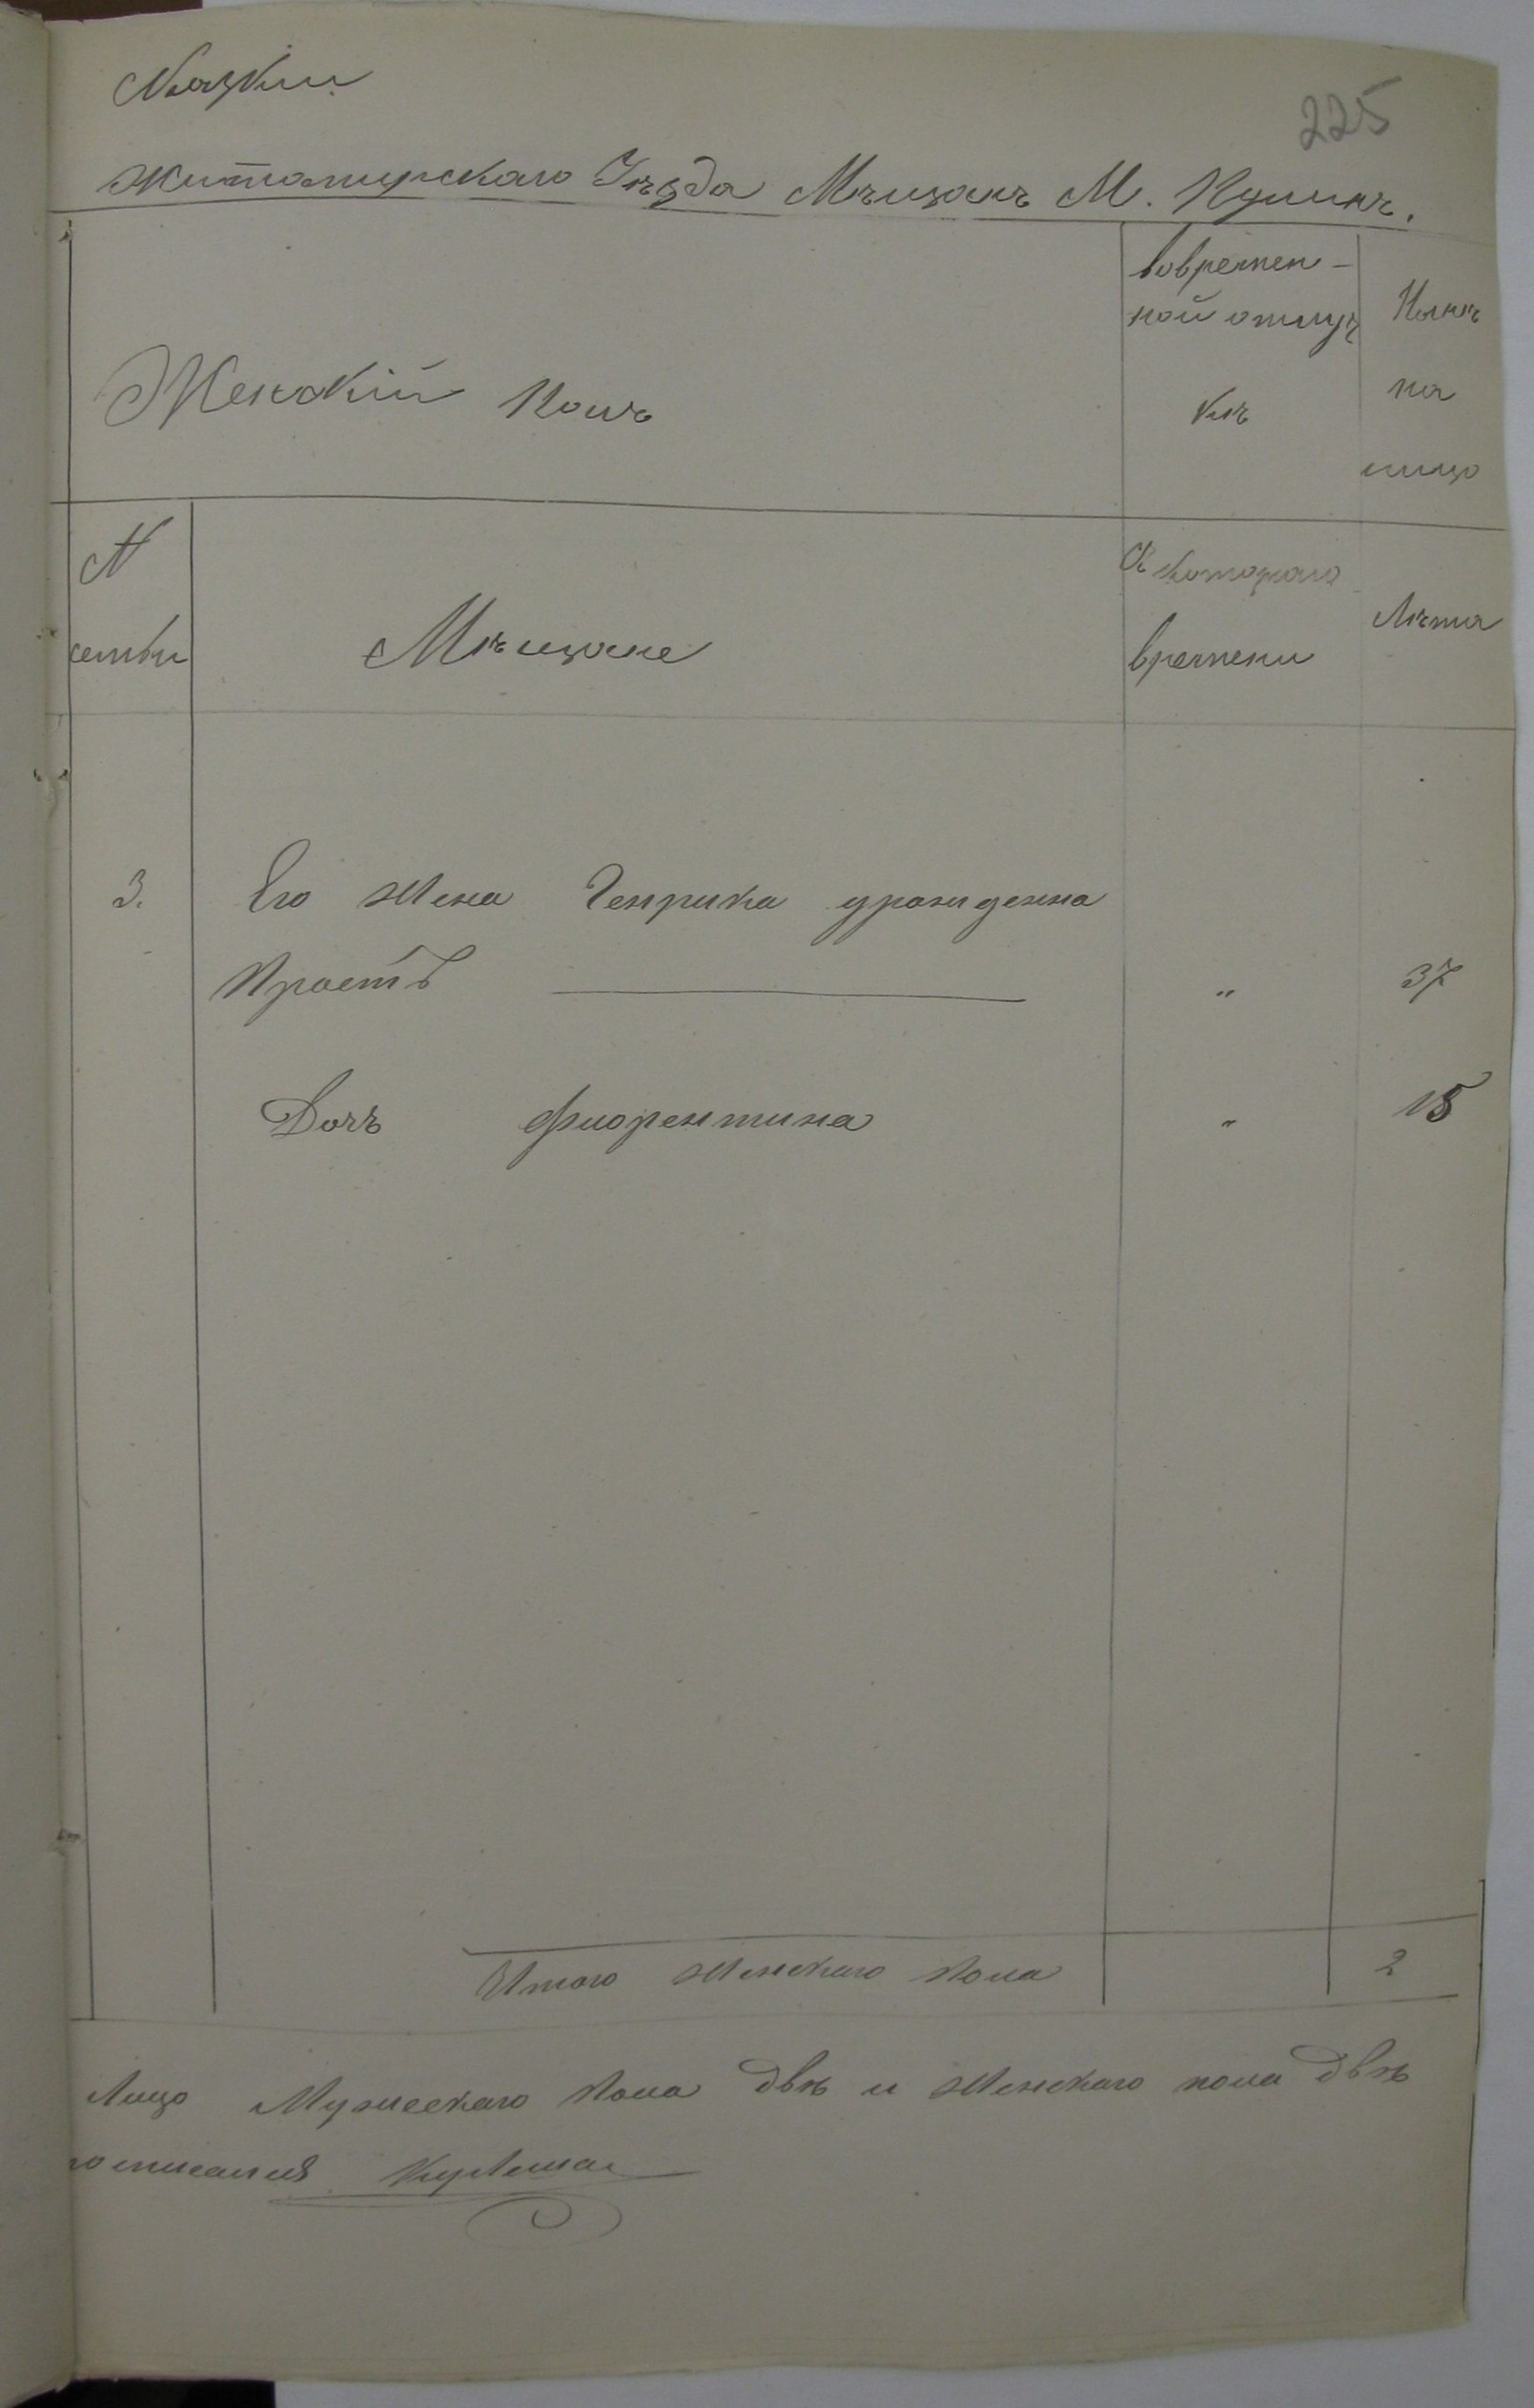 Сказки
225
Житомирскаго Уѣзда Мѣщанъ М. Кулинъ.
Женскій Полъ
вовремен-
ной отлуч
кѣ
Нынѣ
на
лицо
N
семьи
Мѣщане
Съ котораго
времени
Лѣта
3. Его Жена Генрика урожденна
Простъ " 37
Дочь Флорентина " 15
Итого Женскаго Пола 2
Лицо Мужескаго Пола двѣ и Женскаго пола двѣ